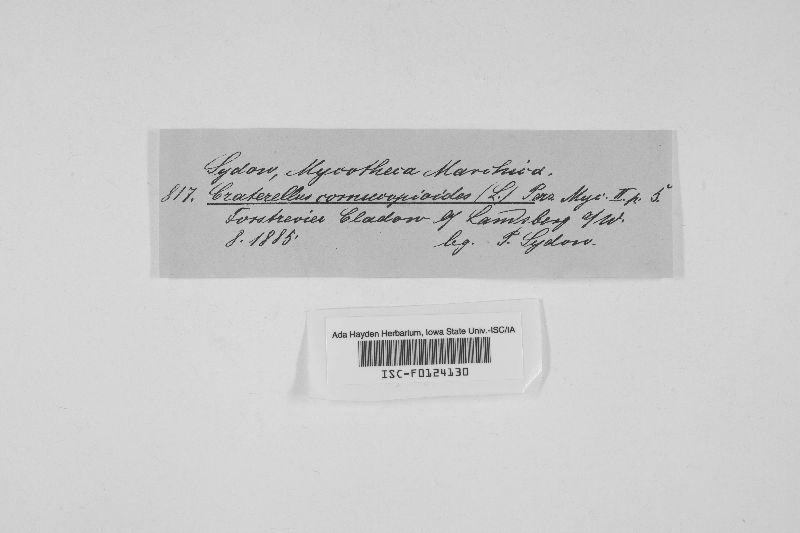 Sydow, Mycotheca Marchica.
817. Craterellus cornucopioides (L.) Pers. Myc. II. p. 5.
Forstrevier Cladow b/ Landsberg a/W.
8. 1885. leg. P. Sydow.
Ada Hayden Herbarium, Iowa State Univ.-ISC/IA
ISC-F0124130